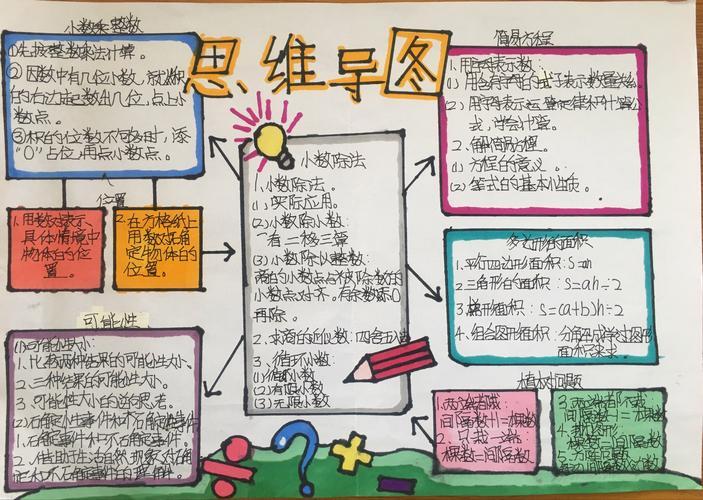 思维导图
小数乘整数
①先按整数乘法计算。
②因数中有几位小数，就从积
的右边起数出几位，点上小
数点。
③积的位数不够时，添
"0"占位，用点小数点。
位置
1.用数对表示
具体情境中
物体的位
置。
2.在方格纸上
用数对确
定物体的位
置。
可能性
(1)可能性大小：
1.比较两种结果的可能性大小。
2.三种结果的可能性大小。
3.可能性大小的逆思考。
1.确定事件和不确定事件。
小数除法
1.小数除法。
(1)实际应用。
(2)小数除小数：
一看二移三算
(3)小数除以整数：
商的小数点与被除数的
小数点对齐。有余数添0
再除。
2.求商的近似数：四舍五入
3.循环小数
(1)循环小数
(2)有限小数
(3)无限小数
简易方程
1.用字母表示数：
(1)用含有字母的式子表示数量关系。
(2)用字母表示运算定律和计算公
式，学会计算。
2.解简易方程。
(1)方程的意义。
(2)等式的基本性质。
多边形的面积
1.平行四边形面积：S=ah
2.三角形的面积：S=ah÷2
3.梯形面积：S=(a+b)h÷2
4.组合图形面积：分解成学过图形
面积来求。
植树问题
1.两端都栽：
间隔数+1=棵数
2.只栽一端：
棵数=间隔数
3.两端都不栽
间隔数-1=棵数
4.封闭图形
棵数=间隔数